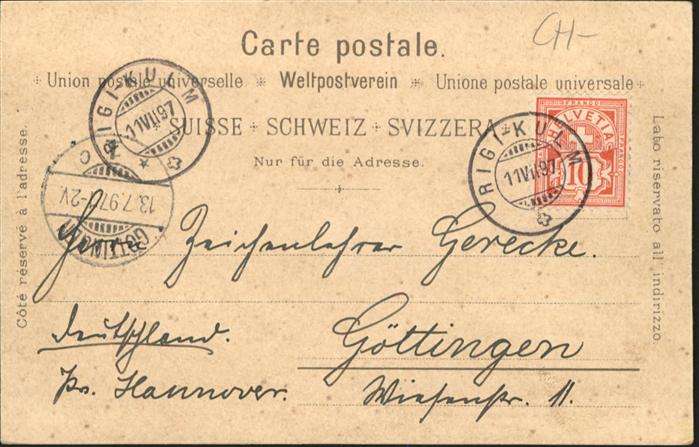 CH-
Carte postale.
Union postale universelle ✳ Weltpostverein ✳ Unione postale universale
SUISSE + SCHWEIZ + SVIZZERA
Nur für die Adresse.
Côté réservé à l'adresse.
Lato riservato all indirizzo.
RIGI-KULM
11 VII 97
RIGI-KULM
11 VII 97
FRANCO
HELVETIA
10
GÖTTINGEN
13.7.97. 1-2V
C
Herrn Zeichenlehrer Gerecke.
Göttingen
Deutschland.
Pr. Hannover.
Wiesenstr. 11.